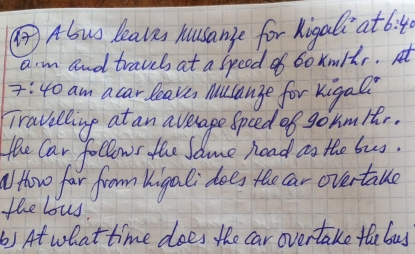 17 A bus leaves Musanze for Kigali at 6:40
a.m and travels at a speed of 60 km/hr. At
7:40 am a car leaves Musanze for Kigali
Travelling at an average speed of 90 km/hr.
the car follows the same road as the bus.
a) How far from Kigali does the car overtake
the bus.
b) At what time does the car overtake the bus